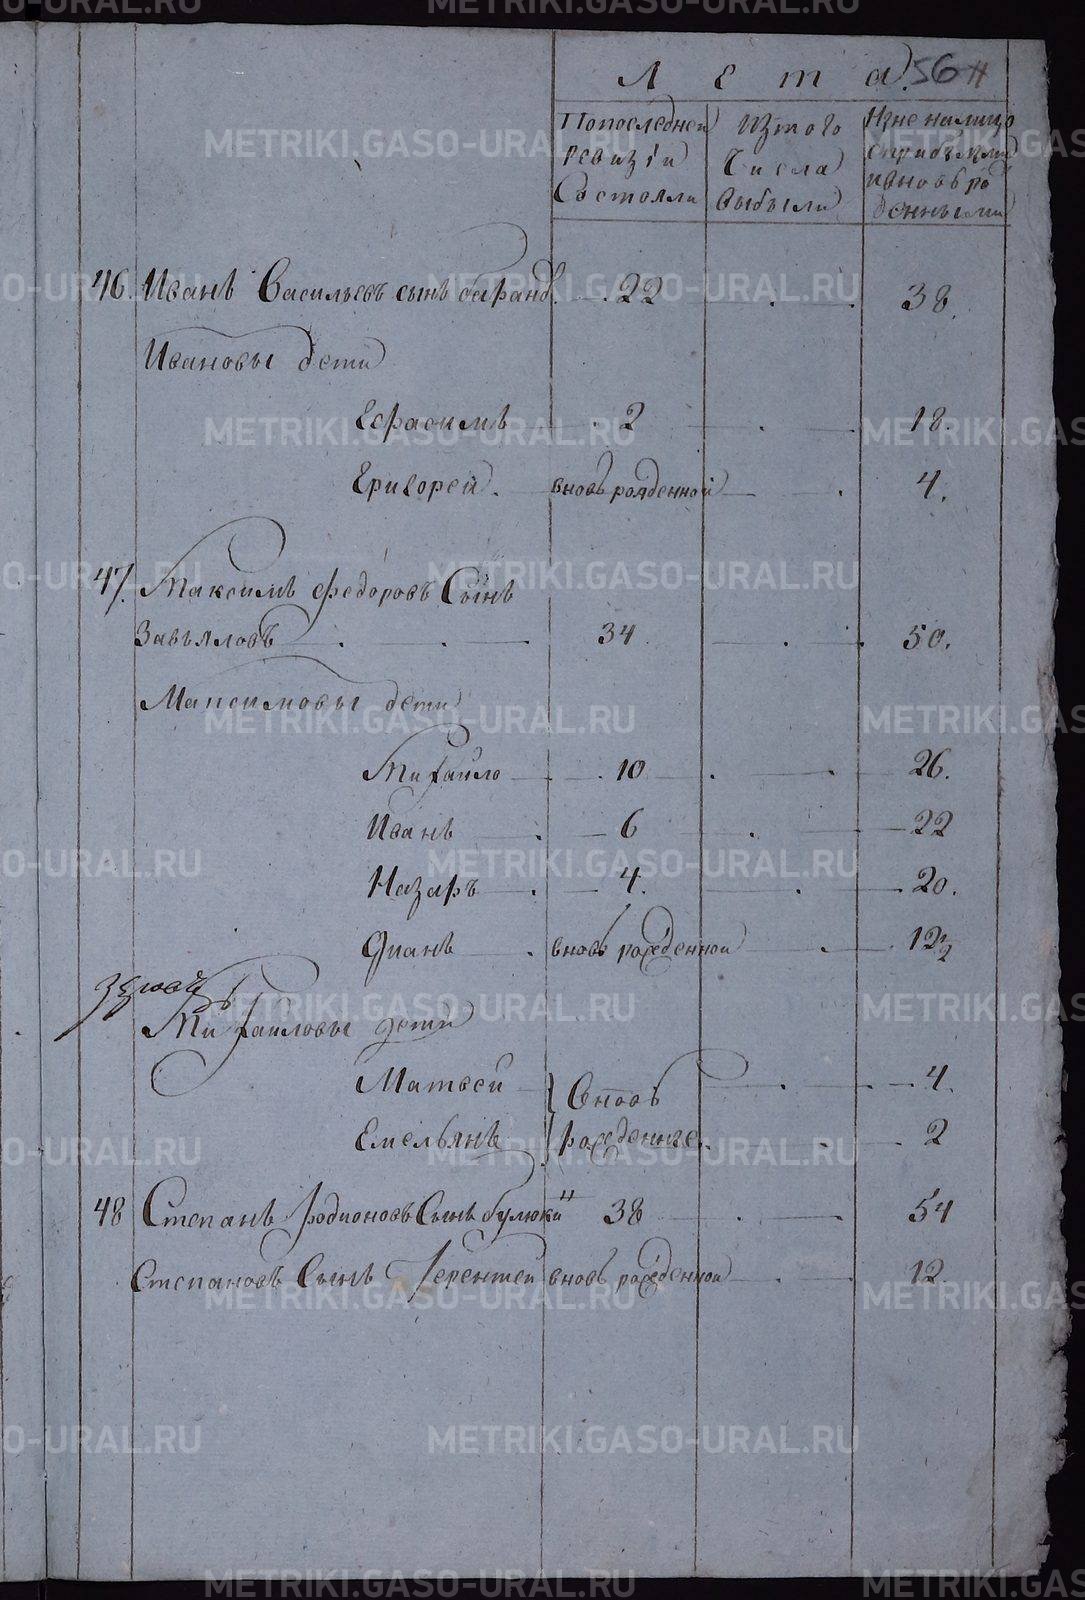 Лета. 56
По последней ревизіи состояли
Из того числа выбыли
Ныне налицо с прибылыми и вновь рожденными
46. Иванъ Васильевъ сынъ 22 38.
Ивановы дети
Герасимъ 2 18.
Григорей. вновь рожденной 4.
47. Максимъ Федоровъ Сынъ
Завьяловъ 34 50.
Максимовы дети
Михайло 10 26.
Иванъ 6 22
Назаръ 4. 20.
вновь рожденной 12 1/2
Михайловы дети
Матвей } вновь 4.
Емельянъ } рожденные. 2
48 Степанъ Родионовъ Сынъ 38 54
Степановъ Сынъ Терентей вновь рожденной 12.
METRIKI.GASO-URAL.RU